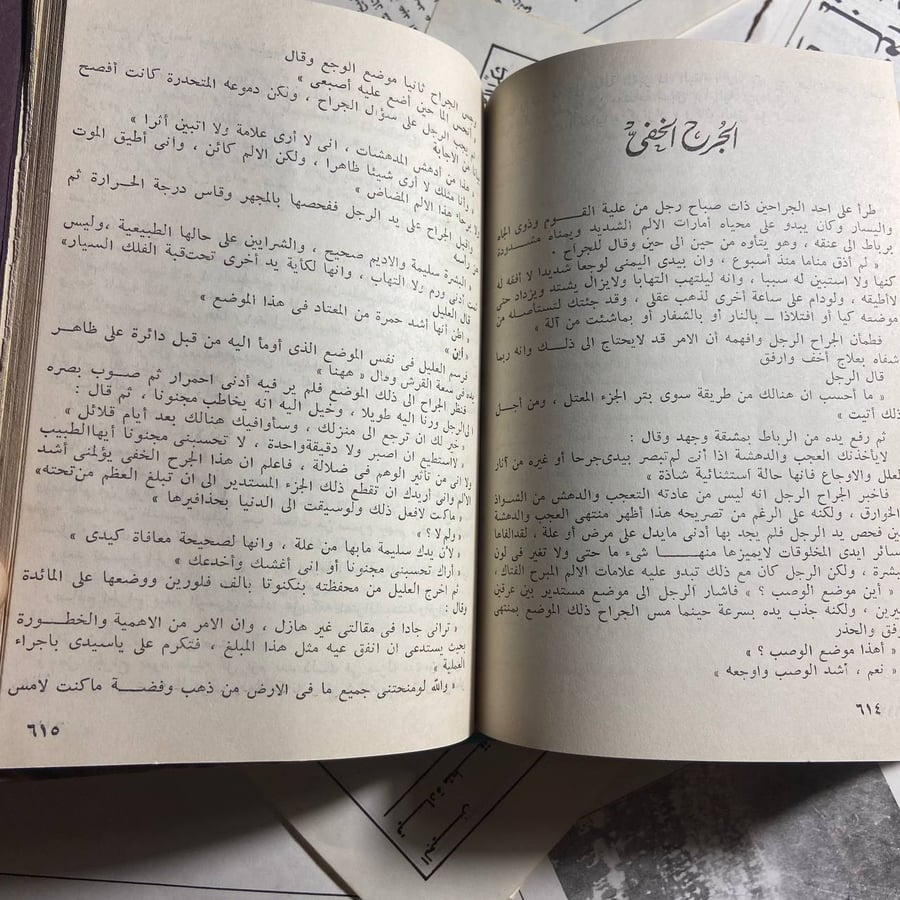 الجرح الخفي
طرأ على احد الجراحين ذات صباح رجل من علية القـــوم وذوى الجاه
واليسار وكان يبدو على محياه أمارات الالم الشديد ويمناه مشـدودة
برباط الى عنقه ، وهو يتأوه من حين الى حين وقال للجراح .
« لم أذق مناما منذ أسبوع ، وان بيدى اليمنى لوجعا شديدا لا أفقه له
كنها ولا استبين له سببا ، وانه ليلتهب التهابا ولايزال يشتد ويزداد حتى
لاأطيقه ، ولودام على ساعة أخرى لذهب عقلى ، وقد جئتك لتستأصله من
موضعه كيا أو افتلاذا ــ بالنار أو بالشفار أو بماشئت من آلة »
فطمأن الجراح الرجل وافهمه أن الامر قد لايحتاج الى ذلــك وانه ربما
شفاه بعلاج أخف وارفق
قال الرجل
« ما أحسب ان هنالك من طريقة سوى بتر الجزء المعتل ، ومن أجــل
ذلك أتيت »
ثم رفع يده من الرباط بمشقة وجهد وقال :
لايأخذنك العجب والدهشة اذا أنت لم تبصر بيدى جرحا أو غيره من آثار
العلل والاوجاع فانها حالة استثنائية شاذة »
فاخبر الجراح الرجل انه ليس من عادته التعجب والدهش من الشـواذ
الخوارق ، ولكنه على الرغم من تصريحه هذا أظهر منتهى العجب والدهشة
حين فحص يد الرجل فلم يجد بها أدنى مايدل على مرض أو علة ، لقد الفاها
سائر ايدى المخلوقات لايميزها منهـــا شىء ما حتى ولا تغير فى لون
بشرة ، ولكن الرجل كان مع ذلك تبدو عليه علامات الالم المبرح الفتاك ،
« أين موضع الوصب ؟ » فأشار الرجل الى موضع مستدير بين عرقين
كبيرين ، ولكنه جذب يده بسرعة حينما مس الجراح ذلك الموضع بمنتهى
الرفق والحذر
« أهذا موضع الوصب ؟ »
« نعم ، أشد الوصب واوجعه »
٦١٤
الجراح ثانيا موضع الوجع وقال
« أتحس ألما حين أضع عليه أصبعى »
يجب الرجل على سؤال الجراح ، ولكن دموعه المتحدرة كانت أفصح
من الاجابة
هذا من أدهش المدهشات ، انى لا أرى علامة ولا اتبين أثرا »
« وأنا مثلك لا أرى شيئا ظاهرا ، ولكن الالم كائن ، وانى أطيق الموت
ولا هذا الالم المضاض »
واقبل الجراح على يد الرجل ففحصها بالمجهر وقاس درجة الحــرارة ثم
هز رأسه
البشرة سليمة والاديم صحيح ، والشرايين على حالها الطبيعية ، وليس
أدنى ورم ولا التهاب ، وانها لكأية يد أخرى تحت قبة الفلك السيار »
قال العليل
« أظن أنها أشد حمرة من المعتاد فى هذا الموضع »
« أين »
فرسم العليل فى نفس الموضع الذى أومأ اليه من قبل دائرة على ظاهــر
يده فى سعة القرش وقال « ههنا »
فنظر الجراح الى ذلك الموضع فلم ير فيه أدنى احمرار ثم صــوب بصره
الى الرجل ورنا اليه طويلا ، وخيل اليه انه يخاطب مجنونا ، ثم قال :
خير لك ان ترجع الى منزلك ، وسأوافيك هنالك بعد أيام قلائل »
« لااستطيع ان اصبر ولا دقيقة واحدة ، لا تحسبنى مجنونا أيها الطبيب
ولا انى من تأثير الوهم فى ضلالة ، فاعلم ان هذا الجرح الخفى يؤلمنى أشد
الالم وانى أريدك ان تقطع ذلك الجزء المستدير الى ان تبلغ العظم من تحته »
« ماكنت لافعل ذلك ولو سيقت الى الدنيا بحذافيرها »
« ولم لا ؟ »
« لأن يدك سليمة مابها من علة ، وانها لصحيحة معافاة كيدى »
« أراك تحسبنى مجنونا أو انى أغشك وأخدعك »
ثم اخرج العليل من محفظته بنكنوتا بالف فلورين ووضعها على المائدة
وقال :
« ترانى جادا فى مقالتى غير هازل ، وان الامر من الاهمية والخطــورة
بحيث يستدعى ان انفق عليه مثل هذا المبلغ ، فتكرم على ياسيدى باجراء
العملية »
« والله لو منحتنى جميع ما فى الارض من ذهب وفضــة ماكنت لامس
٦١٥